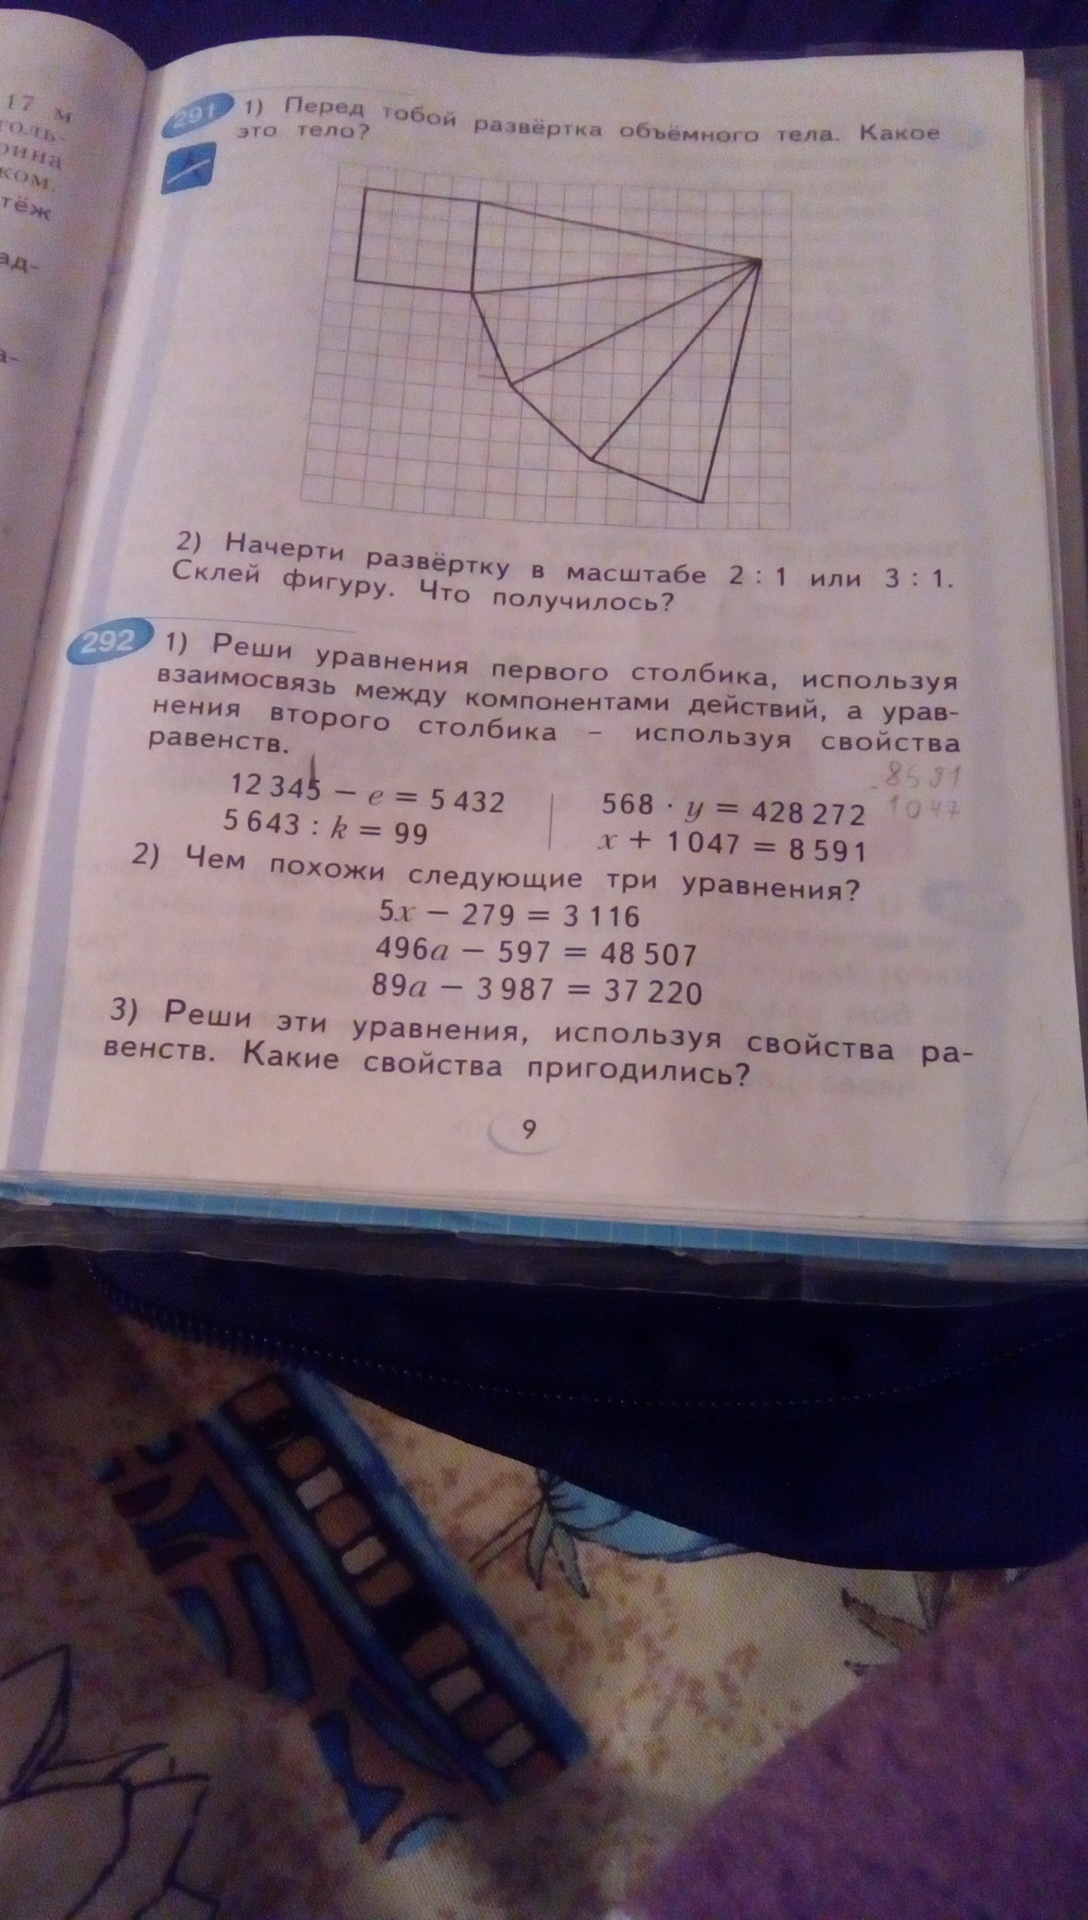 17 м
голь-
рина
ком.
тёж
ад-
а-
291 1) Перед тобой развёртка объёмного тела. Какое
это тело?
2) Начерти развёртку в масштабе 2 : 1 или 3 : 1.
Склей фигуру. Что получилось?
292 1) Реши уравнения первого столбика, используя
взаимосвязь между компонентами действий, а урав-
нения второго столбика – используя свойства
равенств.
12 345 – e = 5 432
5 643 : k = 99
568 · y = 428 272
x + 1 047 = 8 591
8591
1047
2) Чем похожи следующие три уравнения?
5x – 279 = 3 116
496a – 597 = 48 507
89a – 3 987 = 37 220
3) Реши эти уравнения, используя свойства ра-
венств. Какие свойства пригодились?
9